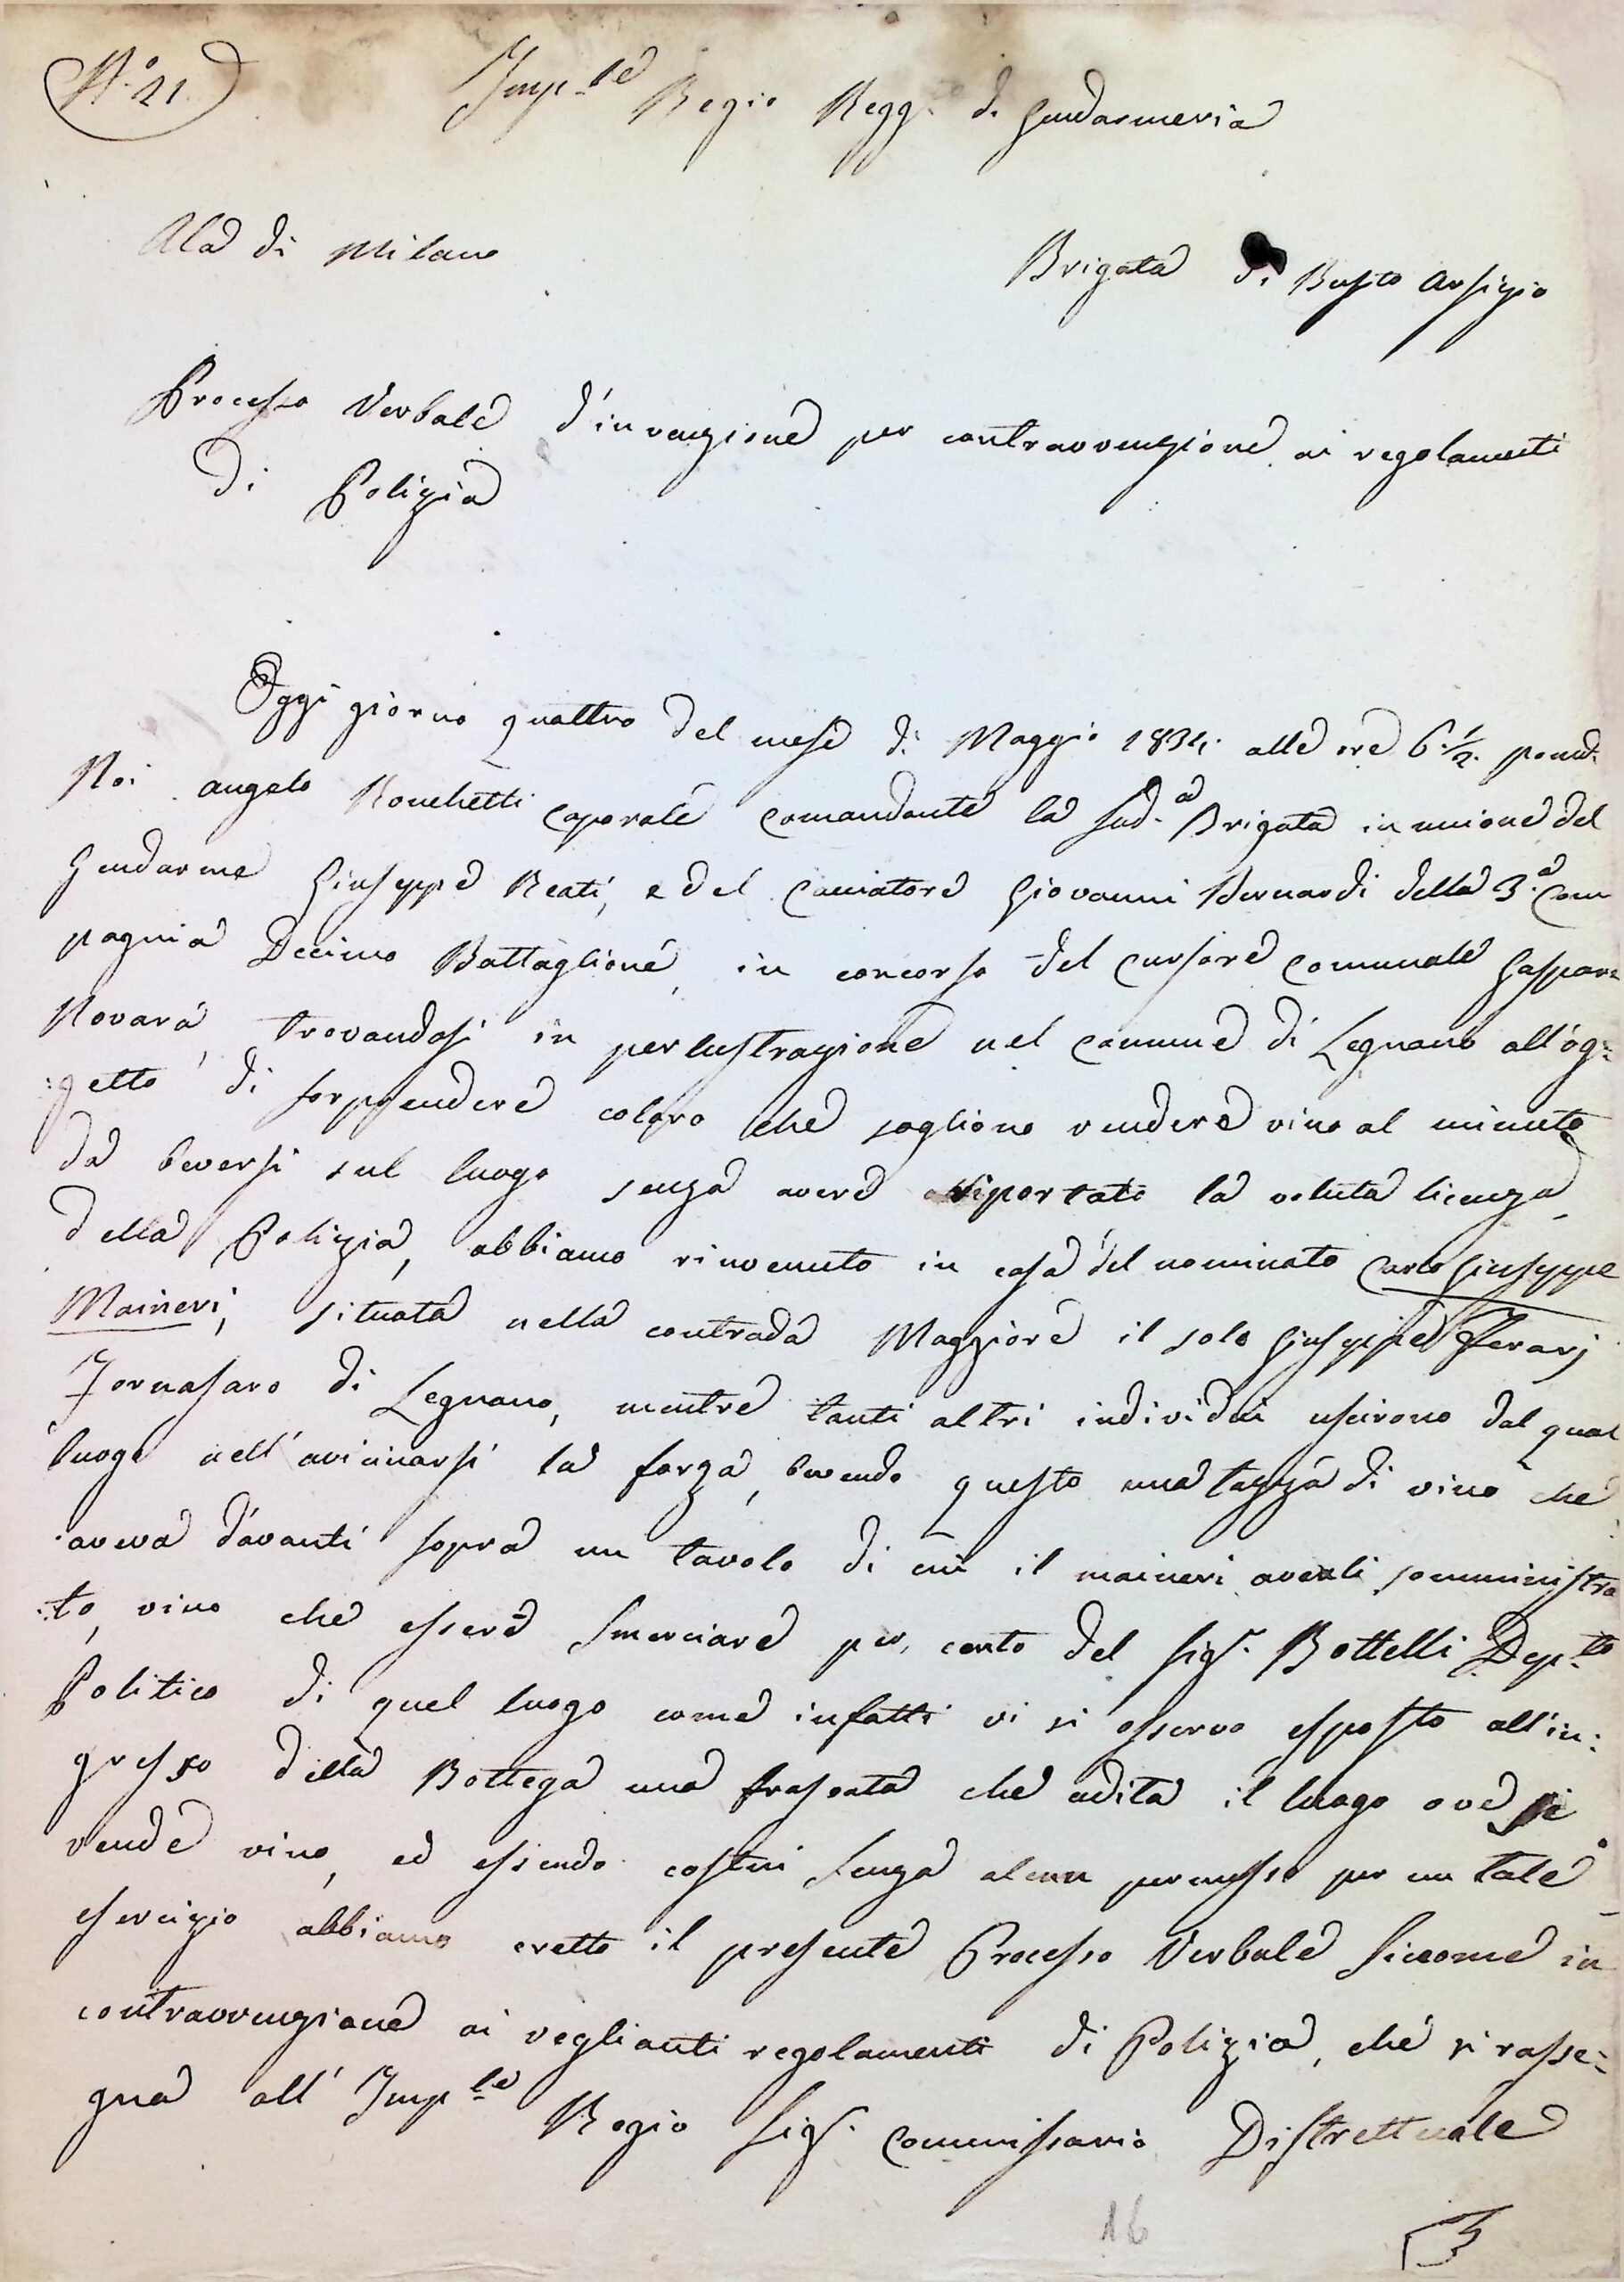 N.° 21
Imp.le Regio Regg. di Gendarmeria
Ala di Milano
Brigata di Busto Arsizio
Processo Verbale d'invenzione per contravvenzione ai regolamenti
di Polizia
Oggi giorno quattro del mese di Maggio 1834. alle ore 6.1/2. pomd.
Noi angelo Ronchetti caporale comandante la sud.a Brigata in unione del
Gendarme Giuseppe Reati, e del Cacciatore Giovanni Bernardi della 3.a Com
pagnia Decimo Battaglione, in concorso del cursore comunale Gaspare
Novara, trovandosi in perlustrazione nel comune di Legnano all'og:
:getto di sorprendere coloro che sogliono vendere vino al minuto
da beversi sul luogo senza avere riportati la voluta licenza
della Polizia, abbiamo rinvenuto in casa del nominato Carlo Giuseppe
Maineri, situata nella contrada Maggiore il solo Giuseppe Ferarj
Fornasaro di Legnano, mentre tanti altri individui uscirono dal qual
luogo nell'avicinarsi la forza, bevendo questo una tazza di vino che
aveva d'avanti sopra un tavolo di cui il maineri aveali somministra
:to, vino che essere smerciare per conto del Sig.r Bottelli Dep.to
Politico di quel luogo come infatti vi si osservo esposto all'in:
gresso della Bottega una frascata che adita il luogo ove si
vende vino, ed essendo costui senza alcun permesso per un tale
esercizio abbiamo eretto il presente Processo Verbale siccome in
contravvenzione ai veglianti regolamenti di Polizia, che si rasse:
gna all' Imp.le Regio Sig.r Commissario Distrettuale
16